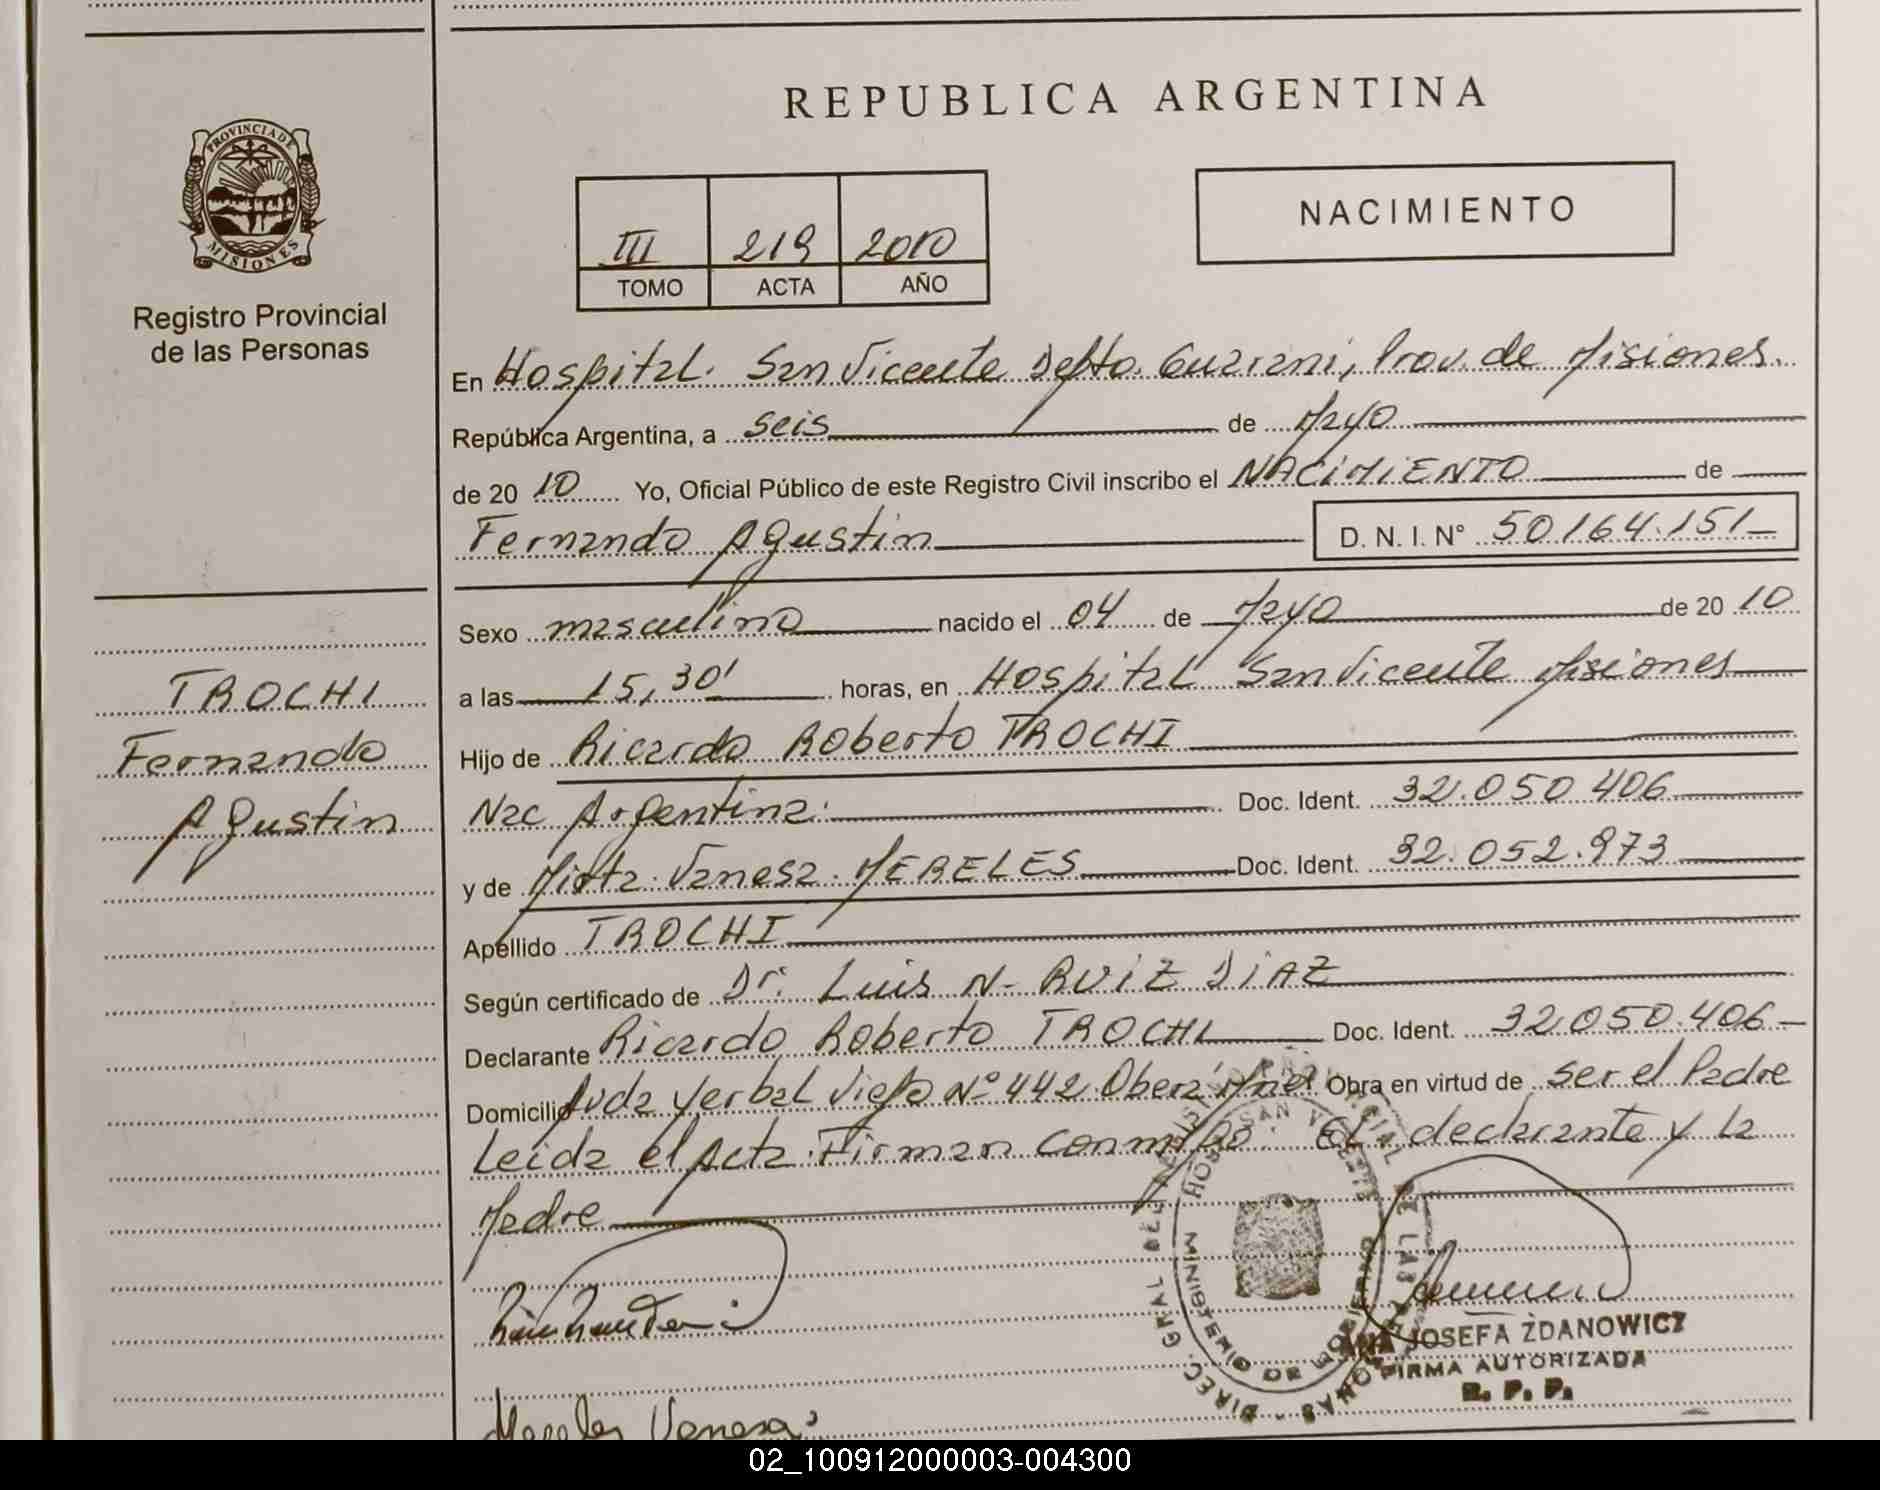 REPUBLICA ARGENTINA
PROVINCIA DE MISIONES
Registro Provincial
de las Personas
III 219 2010
TOMO ACTA AÑO
NACIMIENTO
En Hospital San Vicente Depto. Guarani, Prov. de Misiones.
República Argentina, a seis de Mayo
de 20 10 Yo, Oficial Público de este Registro Civil inscribo el NACIMIENTO de
Fernando Agustin D. N. I. N° 50.164.151
Sexo masculino nacido el 04 de Mayo de 20 10
a las 15,30' horas, en Hospital San Vicente Misiones
Hijo de Ricardo Roberto TROCHI
Nac Argentina. Doc. Ident. 32.050.406
y de Mirta Vanesa MERELES Doc. Ident. 32.052.973
Apellido TROCHI
Según certificado de Dr. Luis N. RUIZ DIAZ
Declarante Ricardo Roberto TROCHI Doc. Ident. 32.050.406
Domicilio Avda Yerbal Viejo N° 442 Oberá Mnes. Obra en virtud de ser el Padre
Leida el Acta Firman conmigo El declarante y La
Madre
TROCHI
Fernando
Agustin
Mereles Vanesa
DIREC. GRAL DEL REGISTRO PROVINCIAL DE LAS PERSONAS
HOSP. SAN VICENTE
MINISTERIO DE GOBIERNO
ANA JOSEFA ZDANOWICZ
FIRMA AUTORIZADA
R. P. P.
02_100912000003-004300